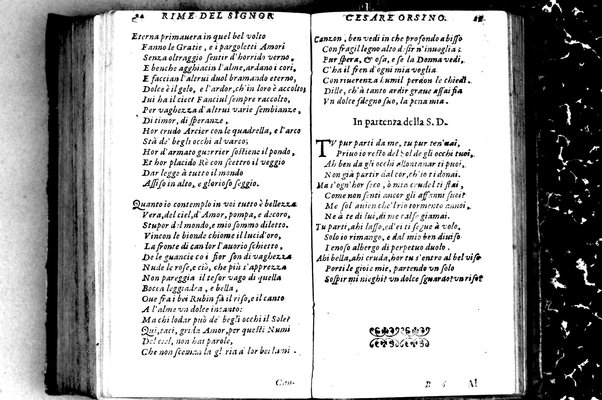 RIME DEL SIGNOR
Eterna primauera in quel bel volto
Fanno le Gratie, e i pargoletti Amori
Senza oltraggio sentir d'horrido verno,
E benche agghiacin l'alme, ardano i cori,
E faccian l'altrui duol bramando eterno,
Dolce è il gelo, e l'ardor, ch'in loro è accolto,
Iui ha il cieco Fanciul sempre raccolto,
Per vaghezza d'altrui varie sembianze,
Di timor, di speranze,
Hor crudo Arcier con le quadrella, e l'arco
Stà de' begli occhi al varco;
Hor d'armato guerrier sostiene il pondo,
Et hor placido Rè con scettro il veggio
Dar legge à tutto il mondo
Assiso in alto, e glorioso seggio.
Quanto io contemplo in voi tutto è bellezza
Vera, del ciel, d'Amor, pompa, e decoro,
Stupor del mondo, e mio sommo diletto.
Vincon le bionde chiome il lucid'oro,
La fronte di candor l'auorio schietto,
De le guancie co i fior son di vaghezza
Nude le rose, e ciò, che più s'apprezza
Non pareggia il tesor vago di quella
Bocca leggiadra, e bella,
Oue frà i bei Rubin stà il riso, e il canto
A l'alme vn dolce incanto:
Ma chi lodar può de' begli occhi il Sole?
Qui, taci, grida Amor, per questi Numi
Del ciel, non hai parole,
Che non scemin la gloria a' lor bei lumi.
Can-
CESARE ORSINO.
Canzon, ben vedi in che profondo abisso
Con fragil legno alto desir n'inuoglia:
Pur spera, & osa, e se la Donna vedi,
C'ha il fren d'ogni mia voglia
Con riuerenza humil perdon le chiedi.
Dille, ch'à tanto ardir graue assai fia
Vn dolce sdegno suo, la pena mia.
In partenza della S. D.
TV pur parti da me, tu pur ten'vai,
Priuo io resto del Sol de gli occhi tuoi,
Ah ben da gli occhi allontanar ti puoi
Non già partir dal cor, ch'io ti donai.
Ma s'ogn'hor seco, ò mia crudel ti stai,
Come non senti ancor gli affanni suoi?
Me sol auien che'l rio tormento annoi,
Ne à te di lui, di me calse giamai.
Tu parti, ahi lasso, ed'ei ti segue à volo,
Solo io rimango, e dal mio ben diuiso
I'enoso albergo di perpetuo duolo.
Ahi bella, ahi cruda, hor tu s'entro al bel viso
Porti le gioie mie, partendo vn solo
Sospir mi nieghi? vn dolce sguardo? vn riso?
Al